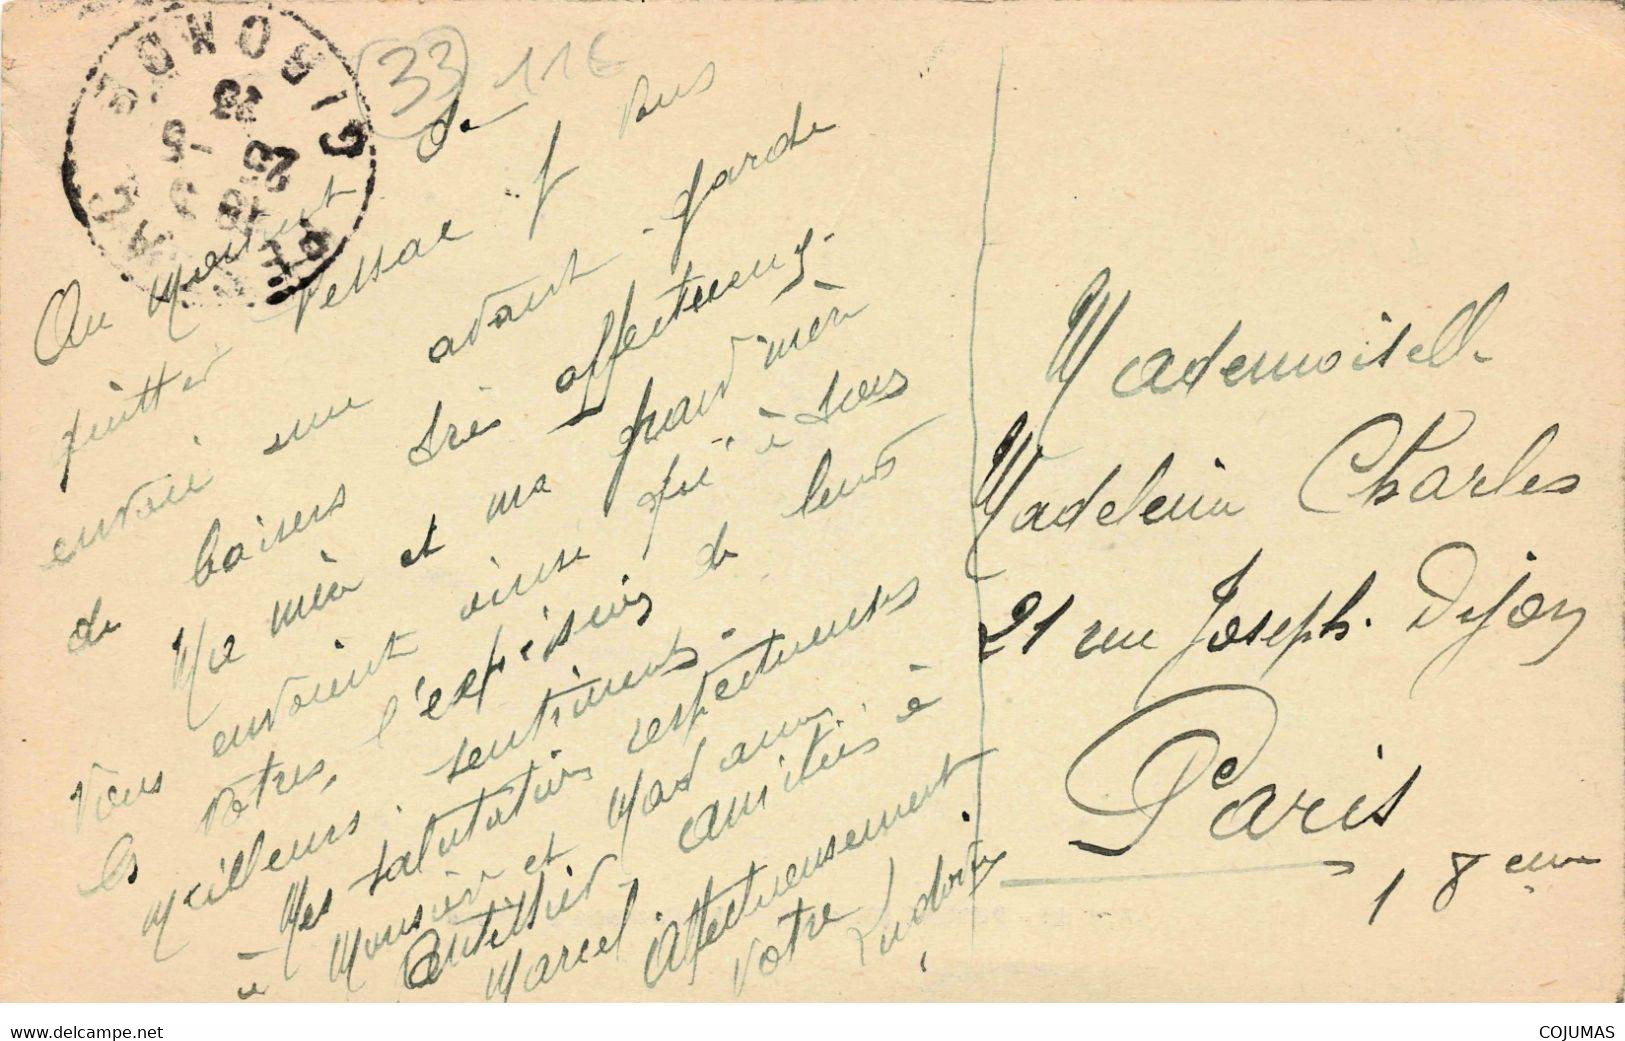 PESSAC GIRONDE
18 25
5 - 5
23
33
11€
Au Moment de
quitter Pessac je vous
envoie une avant-garde
de baisers très affectueux.
Ma mère et ma grand'mère
vous envoient ainsi qu'à tous
les vôtres, l'expression de leurs
meilleurs sentiments.
Mes salutations respectueuses
à Monsieur et Madame
amitiés à
Marcel. Affectueusement
votre
Mademoiselle
Madeleine Charles
21 rue Joseph. Dijon
Paris
18eme
www.delcampe.net
COJUMAS